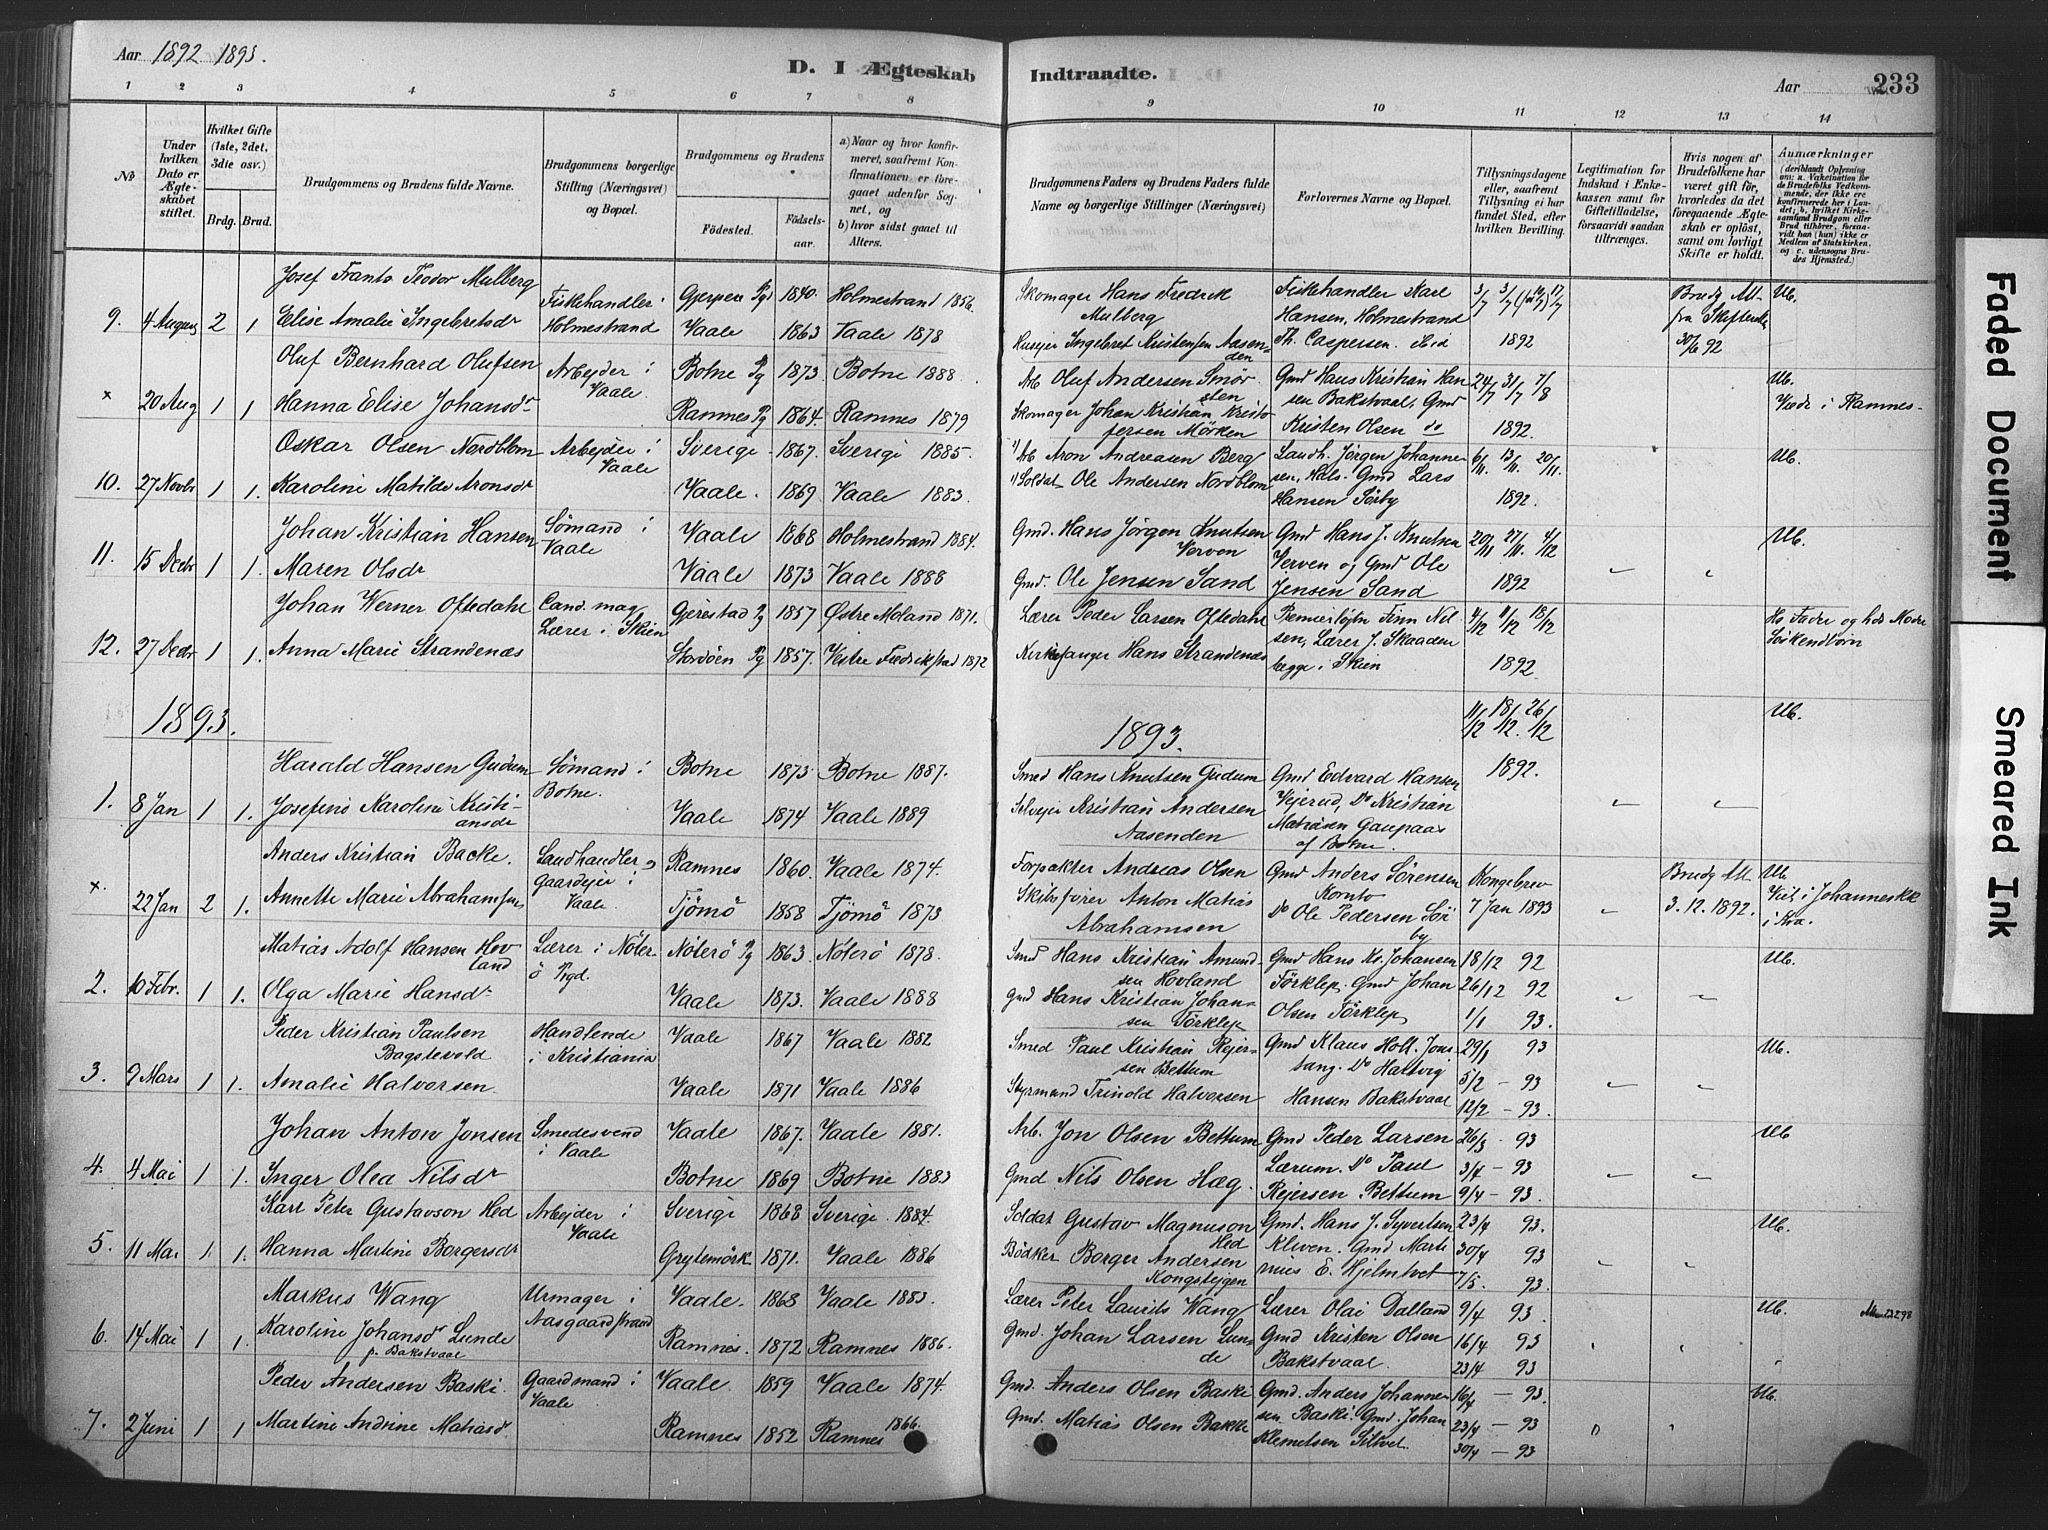 Aar 1892 1893.
D. I Ægteskab Indtraadte.
Aar 233
1 2 3 4 5 6 7 8 9 10 11 12 13 14
No
Under hvilken Dato er Ægteskabet stiftet.
Hvilket Gifte (1ste, 2det, 3die osv.)
Brdg. Brud.
Brudgommens og Brudens fulde Navne.
Brudgommens borgerlige Stilling (Næringsvei) og Bopæl.
Brudgommens og Brudens
Fødested. Fødselsaar.
a) Naar og hvor konfirmeret, saafremt Konfirmationen er foregaaet udenfor Sognet, og
b) hvor sidst gaaet til Alters.
Brudgommens Faders og Brudens Faders fulde Navne og borgerlige Stillinger (Næringsvei)
Forlovernes Navne og Bopæl.
Tillysningsdagene eller, saafremt Tillysning ei har fundet Sted, efter hvilken Bevilling.
Legitimation for Indskud i Enkekassen samt for Giftetilladelse, forsaavidt saadan tiltrænges.
Hvis nogen af Brudefolkene har været gift før, hvorledes da det foregaaende Ægteskab er opløst, samt om lovligt Skifte er holdt.
Anmærkninger (deriblandt Oplysning om: a. Vakcination for de Brudefolks Vedkommende, der ikke ere konfirmerede her i Landet; b. hvilket Kirkesamfund Brudgom eller Brud tilhører, forsaavidt han (hun) ikke er Medlem af Statskirken, og c. udensogns Brudes Hjemsted.)
Josef Frants Teodor Mulberg Fiskehandler i Holmestrand Gjerpen Pgd 1840. Holmestrand 1856. Skomager Hans Fredrik Mulberg Fiskehandler Karl Hansen, Holmestrand 3/7 Brudg. Ub.
9. 4 August 2 1 Elise Amalie Ingebretsdr Vaale 1863 Vaale 1878 Husejer Ingebret Kristensen Aasenden Th. Caspersen ibid 1892 30/6 92
Oluf Bernhard Olufsen Arbejder i Vaale Botne Pg 1873. Botne 1888. Arb Oluf Andersen Smørsten Gmd Hans Kristian Hansen Bakstvaal, Gmd 24/7 31/7 7/8 Ub.
x 20 Aug 1 1 Hanna Elise Johansdr Ramnes Pg 1864. Ramnes 1879 Skomager Johan Kristian Kristofersen Mørken Kristen Olsen do 1892. Viede i Ramnes
Oskar Olsen Nordblom Arbejder i Vaale Sverige 1867. Sverige 1885. Arb Aron Andreasen Berg Landh. Jørgen Johannesen, Hals. Gmd Lars 6/11 13/11 20/11 Ub.
10. 27 Novbr 1 1. Karoline Matilde Aronsdr Vaale. 1869 Vaale 1883. Soldat Ole Andersen Nordblom Hansen Sørby 1892.
Johan Kristian Hansen Sømand i Vaale Vaale 1868 Holmestrand 1884. Gmd. Hans Jørgen Knutsen Verven Gmd Hans J. Knutsen Verven og Gmd Ole 20/11 27/11 4/12 Ub.
11. 15 Decbr 1 1. Maren Olsdr Vaale 1873 Vaale 1888 Gmd. Ole Jensen Sand Jensen Sand 1892
Johan Werner Oftedahl Cand. mag. Lærer i Skien Gjerestad Pg 1857 Østre Moland 1871. Lærer Peder Larsen Oftedahl Premierløjtn Finn Nilsen, Lærer J. Skaaden 4/12 11/12 18/12 Hs Fader og hds Moder Søskendbørn
12. 27 Decbr 1 1. Anna Marie Strandenæs Stordöen Pg 1857. Vestre Fredrikstad 1872 Kirkesanger Hans Strandenæs begge i Skien 1892.
1893. 1893.
11/12 18/12 26/12 Ub.
Harald Hansen Gudum Sømand i Botne. Botne 1873 Botne 1887. Smed Hans Knutsen Gudum Gmd Edvard Hansen 1892.
1. 8 Jan 1 1. Josefine Karoline Kristiansdr Vaale 1874 Vaale 1889 Selvejer Kristian Andersen Aasenden Vejerud, Do Kristian Matiasen Gaupaas af Botne.
Anders Kristian Backe. Landhandler og Gaardejer i Vaale Ramnes 1860. Vaale 1874. Forpakter Andreas Olsen Gmd Anders Sørensen Konto Kongebrev Brudg Ub
x. 22 Jan 2 1. Annette Marie Abrahamsen Tjømö 1858 Tjømö 1873 Skibsfører Anton Matias Abrahamsen Do Ole Pedersen Sörby 7 Jan 1893 3.12.1892. Viet i Johanneskk i Kra.
Matias Adolf Hansen Hovland Lærer i Nöterö Pgd. Nöterö Pg 1863. Nöterö 1878. Smd Hans Kristian Amundsen Hovland Gmd Hans Kr. Johansen 18/12 92 Ub.
2. 10 Febr. 1 1. Olga Marie Hansdr Vaale 1873. Vaale 1888 Gmd Hans Kristian Johansen Törklep Törklep. Gmd Johan Olsen Törklep 26/12 92 1/1 93.
Peder Kristian Paulsen Bagstevold Handlende i Kristiania Vaale 1867 Vaale 1882 Smed Paul Kristian Rejersen Bettum Gmd Klaus Holt. Jonsbang. Do Hartvig 29/1 93 Ub.
3. 9 Mars 1 1. Amalie Halvorsen. Vaale 1871 Vaale 1886 Styrmand Trinold Halvorsen Hansen Bakstvaal 5/2 - 93 12/2 - 93.
Johan Anton Jonsen Smedesvend i Vaale Vaale 1867. Vaale 1881. Arb. Jon Olsen Bettum Gmd Peder Larsen 26/3 - 93 Ub
4. 4 Mai 1 1. Inger Olea Nilsdr Botne 1869 Botne 1883 Gmd Nils Olsen Hæg. Lærum. Do Paul Rejersen Bettum 3/4 - 93 9/4 - 93.
Karl Peter Gustavson Hed Arbejder i Vaale Sverige 1868 Sverige. 1884. Soldat Gustav Magnuson Hed Gmd. Hans J. Syvertsen 23/4 93. Ub.
5. 11 Mai 1 1. Hanna Martine Borgersdr Grytemörk. 1871. Vaale 1886 Bødker Borger Andersen Kongstejgen Kleven. Gmd Martinius E. Hjelmtvet 30/4 93 7/5. 93.
Markus Wang Urmager i Aasgaardstrand Vaale. 1868 Vaale 1883. Lærer Peter Laurits Wang Lærer Olai Dalland 9/4 93. Ub.
6. 14 Mai 1 1. Karoline Johansdr Lunde p. Bakstvaal Ramnes. 1872 Ramnes 1886. Gmd. Johan Larsen Lunde Gmd Kristen Olsen Bakstvaal. 16/4 93 23/4 93
Peder Andersen Baski. Gaardmand i Vaale Vaale. 1859 Vaale 1874. Gmd. Anders Olsen Baske Gmd. Anders Johannesen Baski. Gmd. Johan 16/4 - 93. Ub.
7. 2 Juni 1 1 Martine Andrine Matiasdr. Ramnes 1852 Ramnes 1866. Gmd. Matias Olsen Bakke Klemetsen Siltvet. 23/4 - 93 30/4 - 93
Faded Document
Smeared Ink